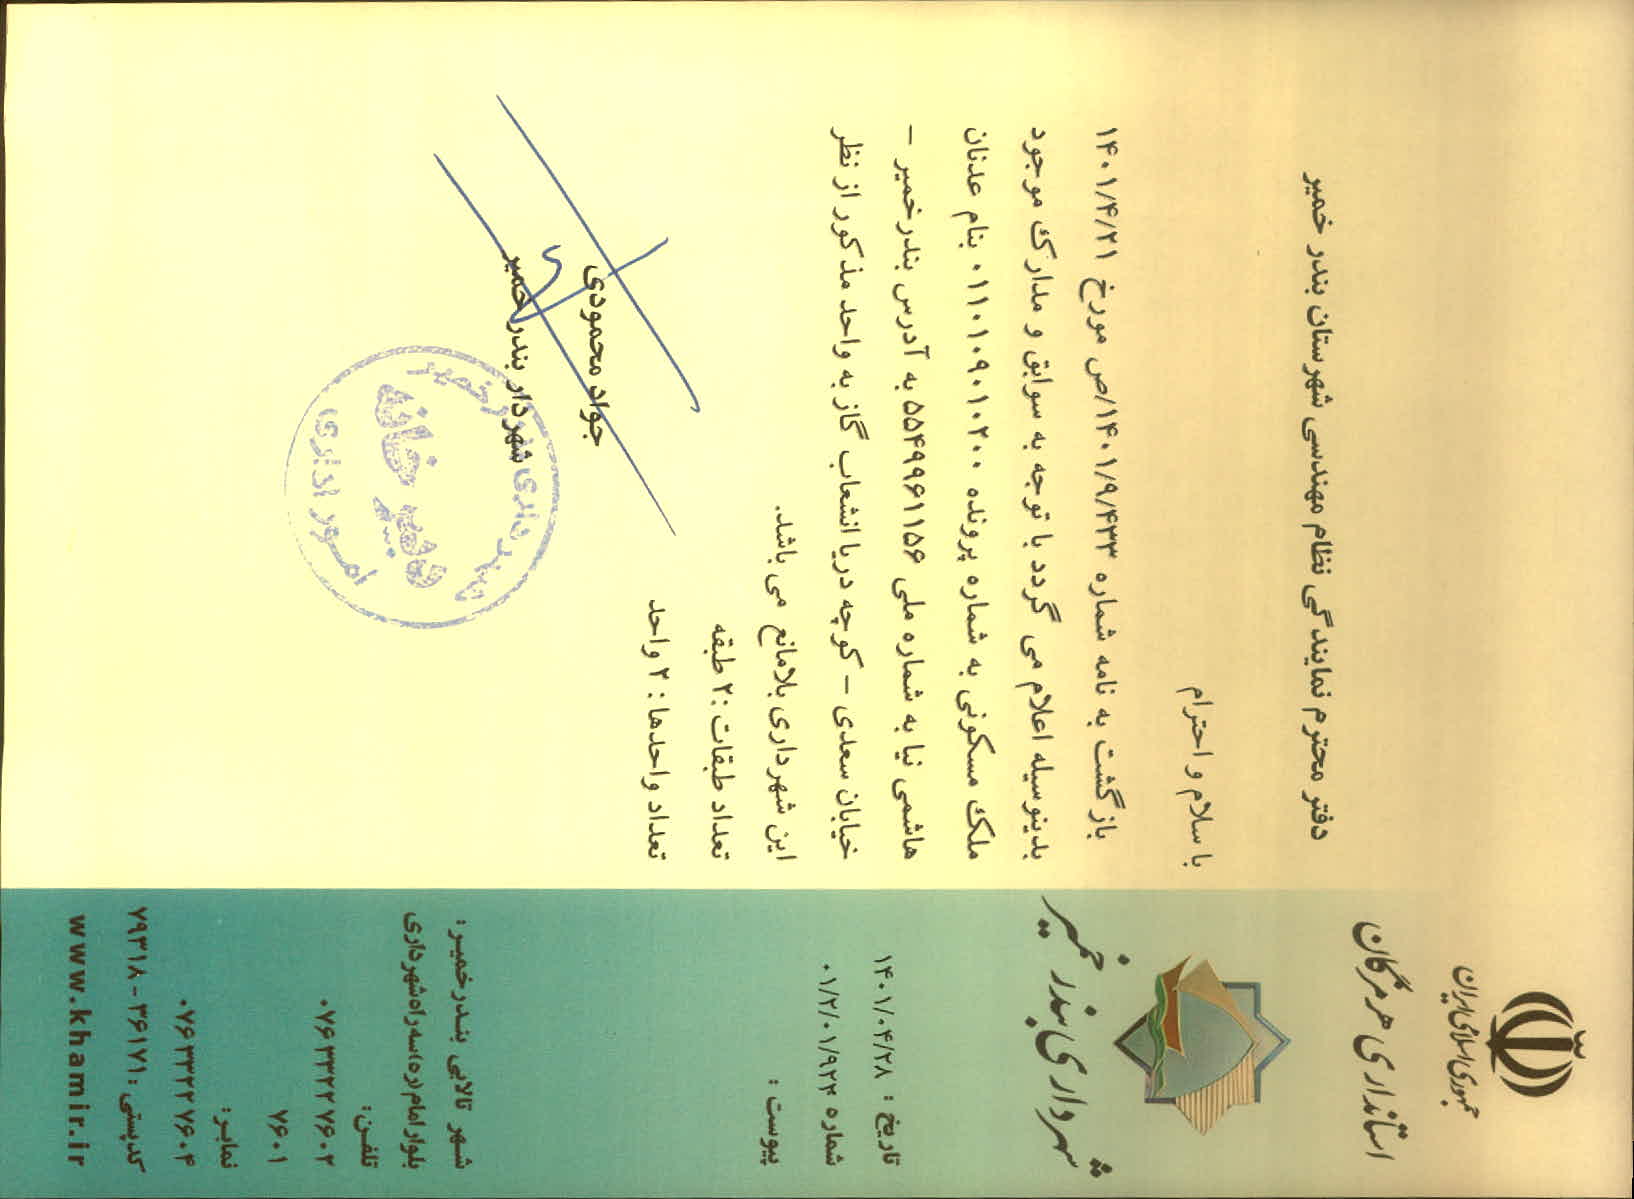 جمهوری اسلامی ایران
استانداری هرمزگان
شهرداری بندر خمیر
تاریخ : ۱۴۰۱/۰۴/۲۸
شماره ۰۱/۲/۰۱/۹۲۴
پیوست :
دفتر محترم نمایندگی نظام مهندسی شهرستان بندر خمیر
با سلام و احترام
بازگشت به نامه شماره ۱۴۰۱/۹/۴۳۳/ص مورخ ۱۴۰۱/۴/۲۱
بدینوسیله اعلام می گردد با توجه به سوابق و مدارک موجود
ملک مسکونی به شماره پرونده ۰۱۱۰۱۰۹۰۱۰۲۰۰ بنام عدنان
هاشمی نیا به شماره ملی ۵۵۴۹۹۶۱۱۵۶ به آدرس بندرخمیر –
خیابان سعدی – کوچه دریا انشعاب گاز به واحد مذکور از نظر
این شهرداری بلامانع می باشد.
تعداد طبقات :۲ طبقه
تعداد واحدها : ۲ واحد
جواد محمودی
شهردار بندر خمیر
دبیرخانه
امور اداری
شهر تالابی بندرخمیر:
بلوار امام (ره) سه راه شهرداری
تلفن:
۰۷۶۳۳۲۲۷۶۰۲
۷۶۰۱
نمابر:
۰۷۶۳۳۲۲۷۶۰۴
کدپستی : ۳۶۱۷۱ - ۷۹۳۱۸
www.khamir.ir